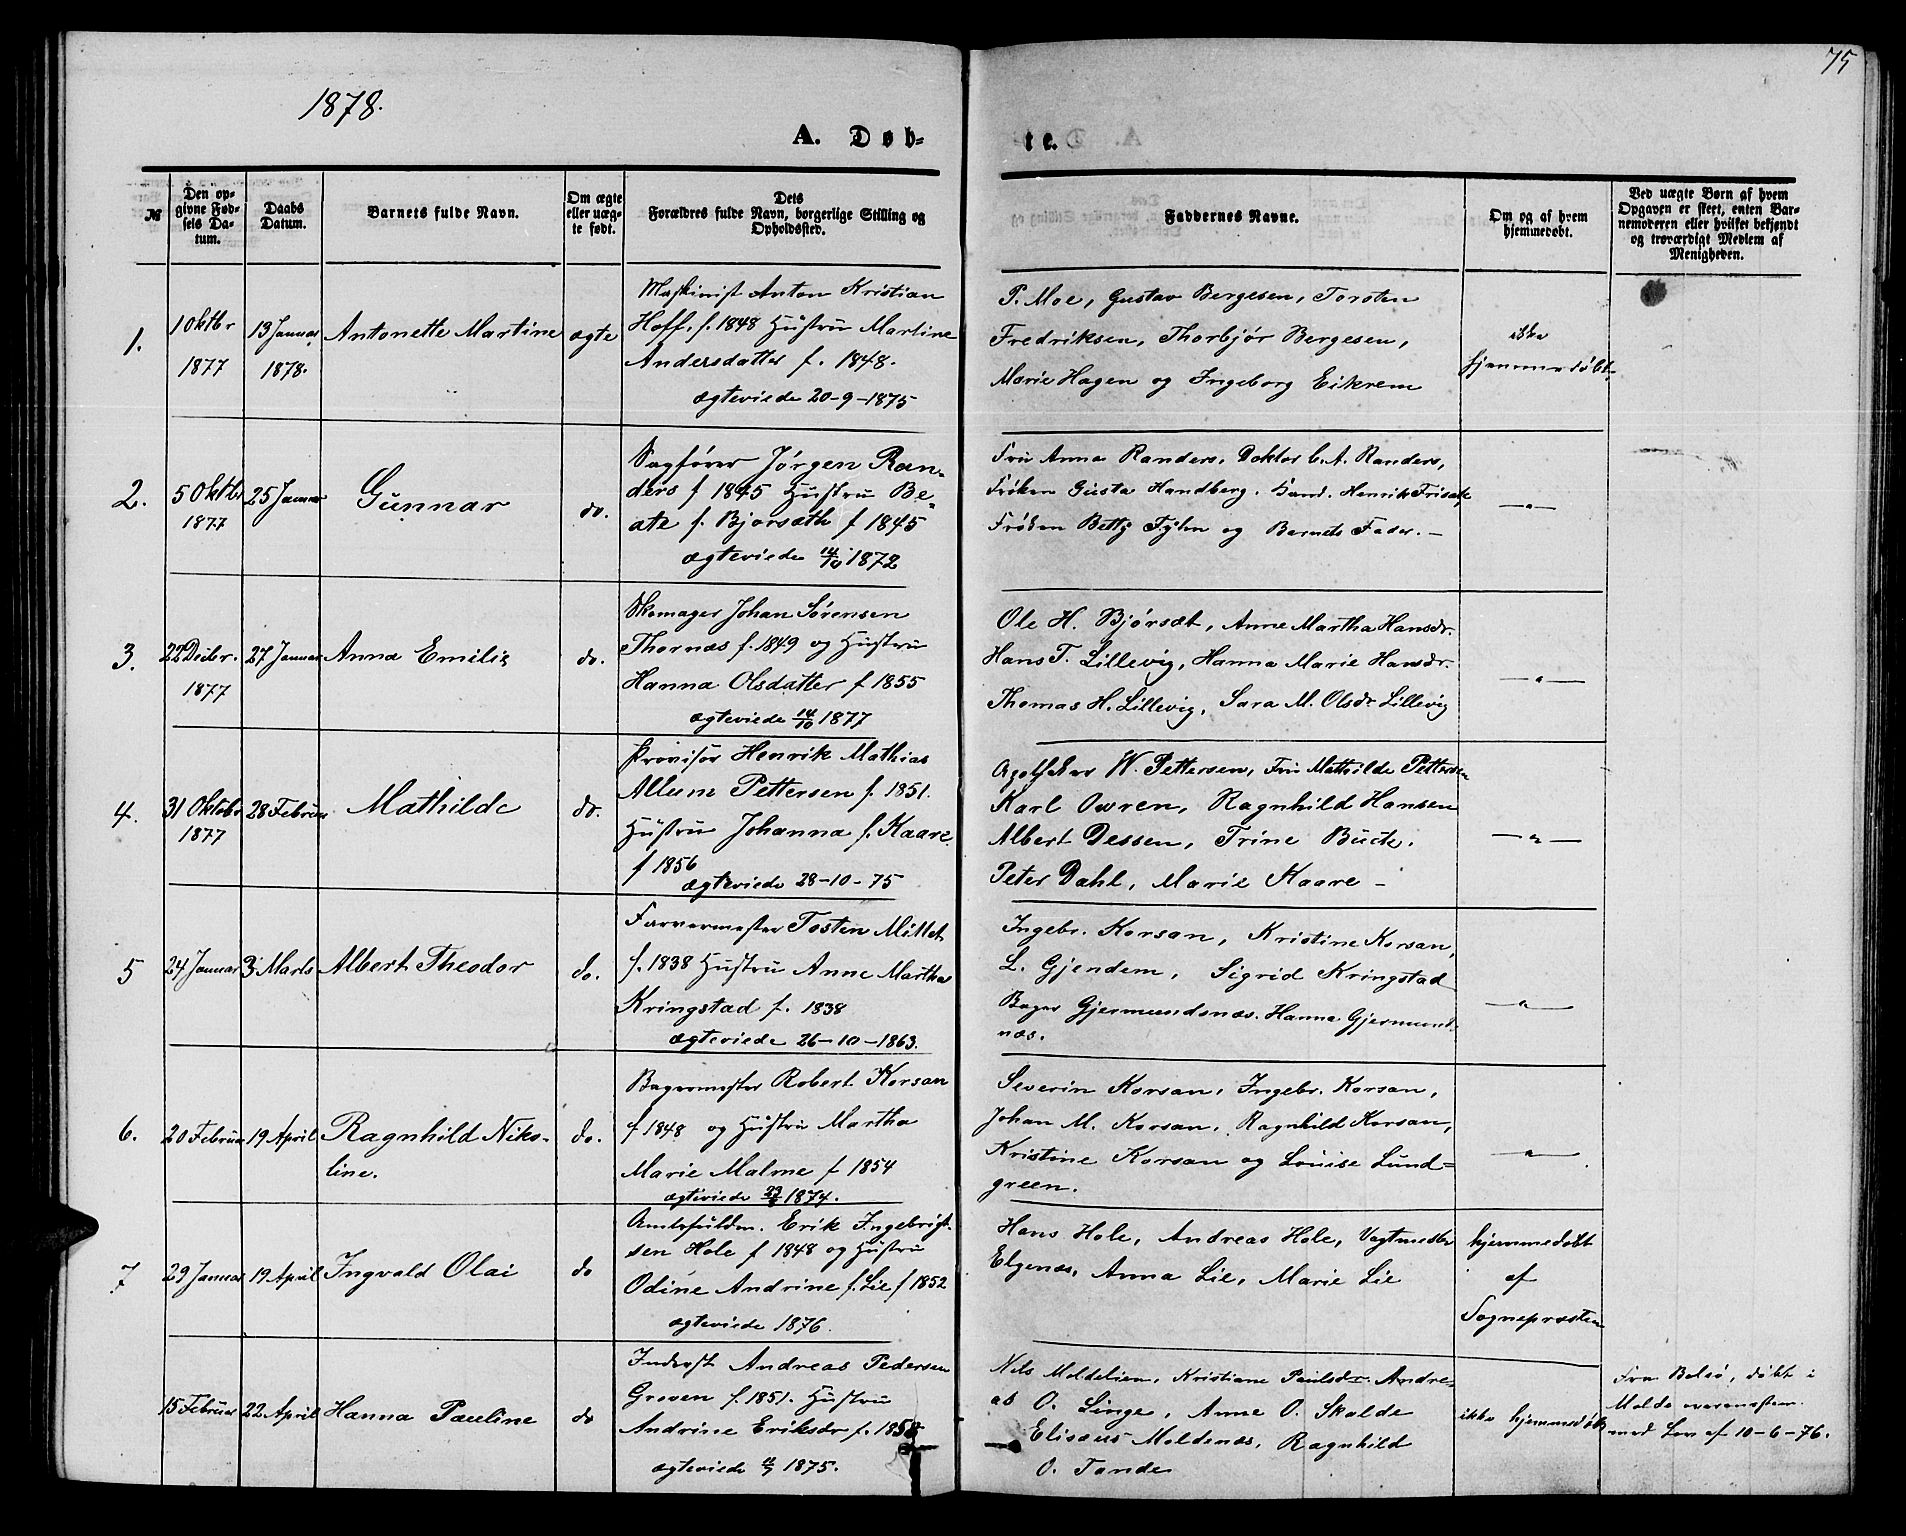 75
1878.
A. Døb-
te.
№
Den op-
givne Fød-
sels Da-
tum.
Daabs
Datum.
Barnets fulde Navn.
Om ægte
eller uæg-
te født.
Dets
Forældres fulde Navn, borgerlige Stilling og
Opholdssted.
Faddernes Navne.
Om og af hvem
hjemmedøbt.
Ved uægte Børn af hvem
Opgaven er skeet, enten Bar-
nemoderen eller hvilket bekjendt
og troværdigt Medlem af
Menigheden.
1.
1 Oktbr
1877
13 Januar
1878.
Antonette Martine
ægte
Maskinist Anton Kristian
Hoff, f. 1848 Hustru Martine
Andersdatter f. 1848.
ægteviede 20-9-1875
P. Moe, Gustav Bergesen, Torsten
Fredriksen, Thorbjør Bergesen,
Marie Hagen og Ingeborg Eikrem
ikke
hjemmedøbt
2.
5 Oktbr
1877
25 Januar
Gunnar
do.
Sagfører Jørgen Ran-
ders f 1845 Hustru Be-
ate f. Bjorsæth f 1845
ægteviede 14/10 1872
Fru Anna Randers, Doktor C. A. Randers,
Frøken Gusta Handberg. Kand. Henrik
Frøken Betty og Barnets Fader. —
—"—
3.
22 Decbr.
1877
27 Januar
Anna Emilie
do.
Skomager Johan Sørensen
Thornæs f. 1849 og Hustru
Hanna Olsdatter f 1855
ægteviede 14/10 1877
Ole H. Bjørsæt, Anne Martha Hansdr.
Hans T. Lillevig, Hanna Marie Hansdr.
Thomas H. Lillevig, Sara M. Olsdr Lillevig
—"—
4.
31 Oktobr
1877
28 Februar
Mathilde
do.
Provisor Henrik Mathias
Allum Pettersen f. 1851.
Hustru Johanna f. Kaare
f 1856
ægteviede 28-10-75
W. Pettersen, Fru Mathilde Pettersen
Karl Owren, Ragnhild Hansen
Albert Dessen, Trine Bucte.
Peter Dahl, Marie Kaare —
—"—
5
24 Januar
3 Marts
Albert Theodor
do.
Farvermester Tosten Mittet
f. 1838 Hustru Anne Martha
Kringstad f. 1838
ægteviede 26-10-1863.
Ingebr. Korsan, Kristine Korsan,
L. Gjendem, Sigrid Kringstad
Bager Gjermundsnæs. Hanna Gjermund-
næs.
—"—
6.
20 Februar
19 April
Ragnhild Niko-
line.
do.
Bagermester Robert Korsan
f 1848 og Hustru Martha
Marie Malme f 1854
ægteviede 1874.
Severin Korsan, Ingebr. Korsan,
Johan M. Korsan, Ragnhild Korsan,
Kristine Korsan og Louise Lund=
green.
—"—
7.
29 Januar
19 April
Ingvald Olai
do
Amtsfuldm. Erik Ingebrigt-
sen Hole f 1848 og Hustru
Odine Andrine f. Lie f 1852
ægteviede 1876.
Hans Hole, Andreas Hole, Vagtmester
Elgenæs, Anna Lie, Marie Lie
hjemmedøbt
af
Sognepræsten
15 Februar
22 April
Hanna Pauline
do
Inderst Andreas Pedersen
Greven f. 1851. Hustru
Andrine Eriksdr f. 1858
ægteviede 1875.
Nils Moldelien, Kristiane Paulsdr. Andre-
as O. Linge, Anne O. Skalde
Elisæus Moldenæs, Ragnhild
O. Tande
ikke hjemmedøbt
Fra Bolsø, døbt i
Molde overensstem.
med Lov af 10-6-76.